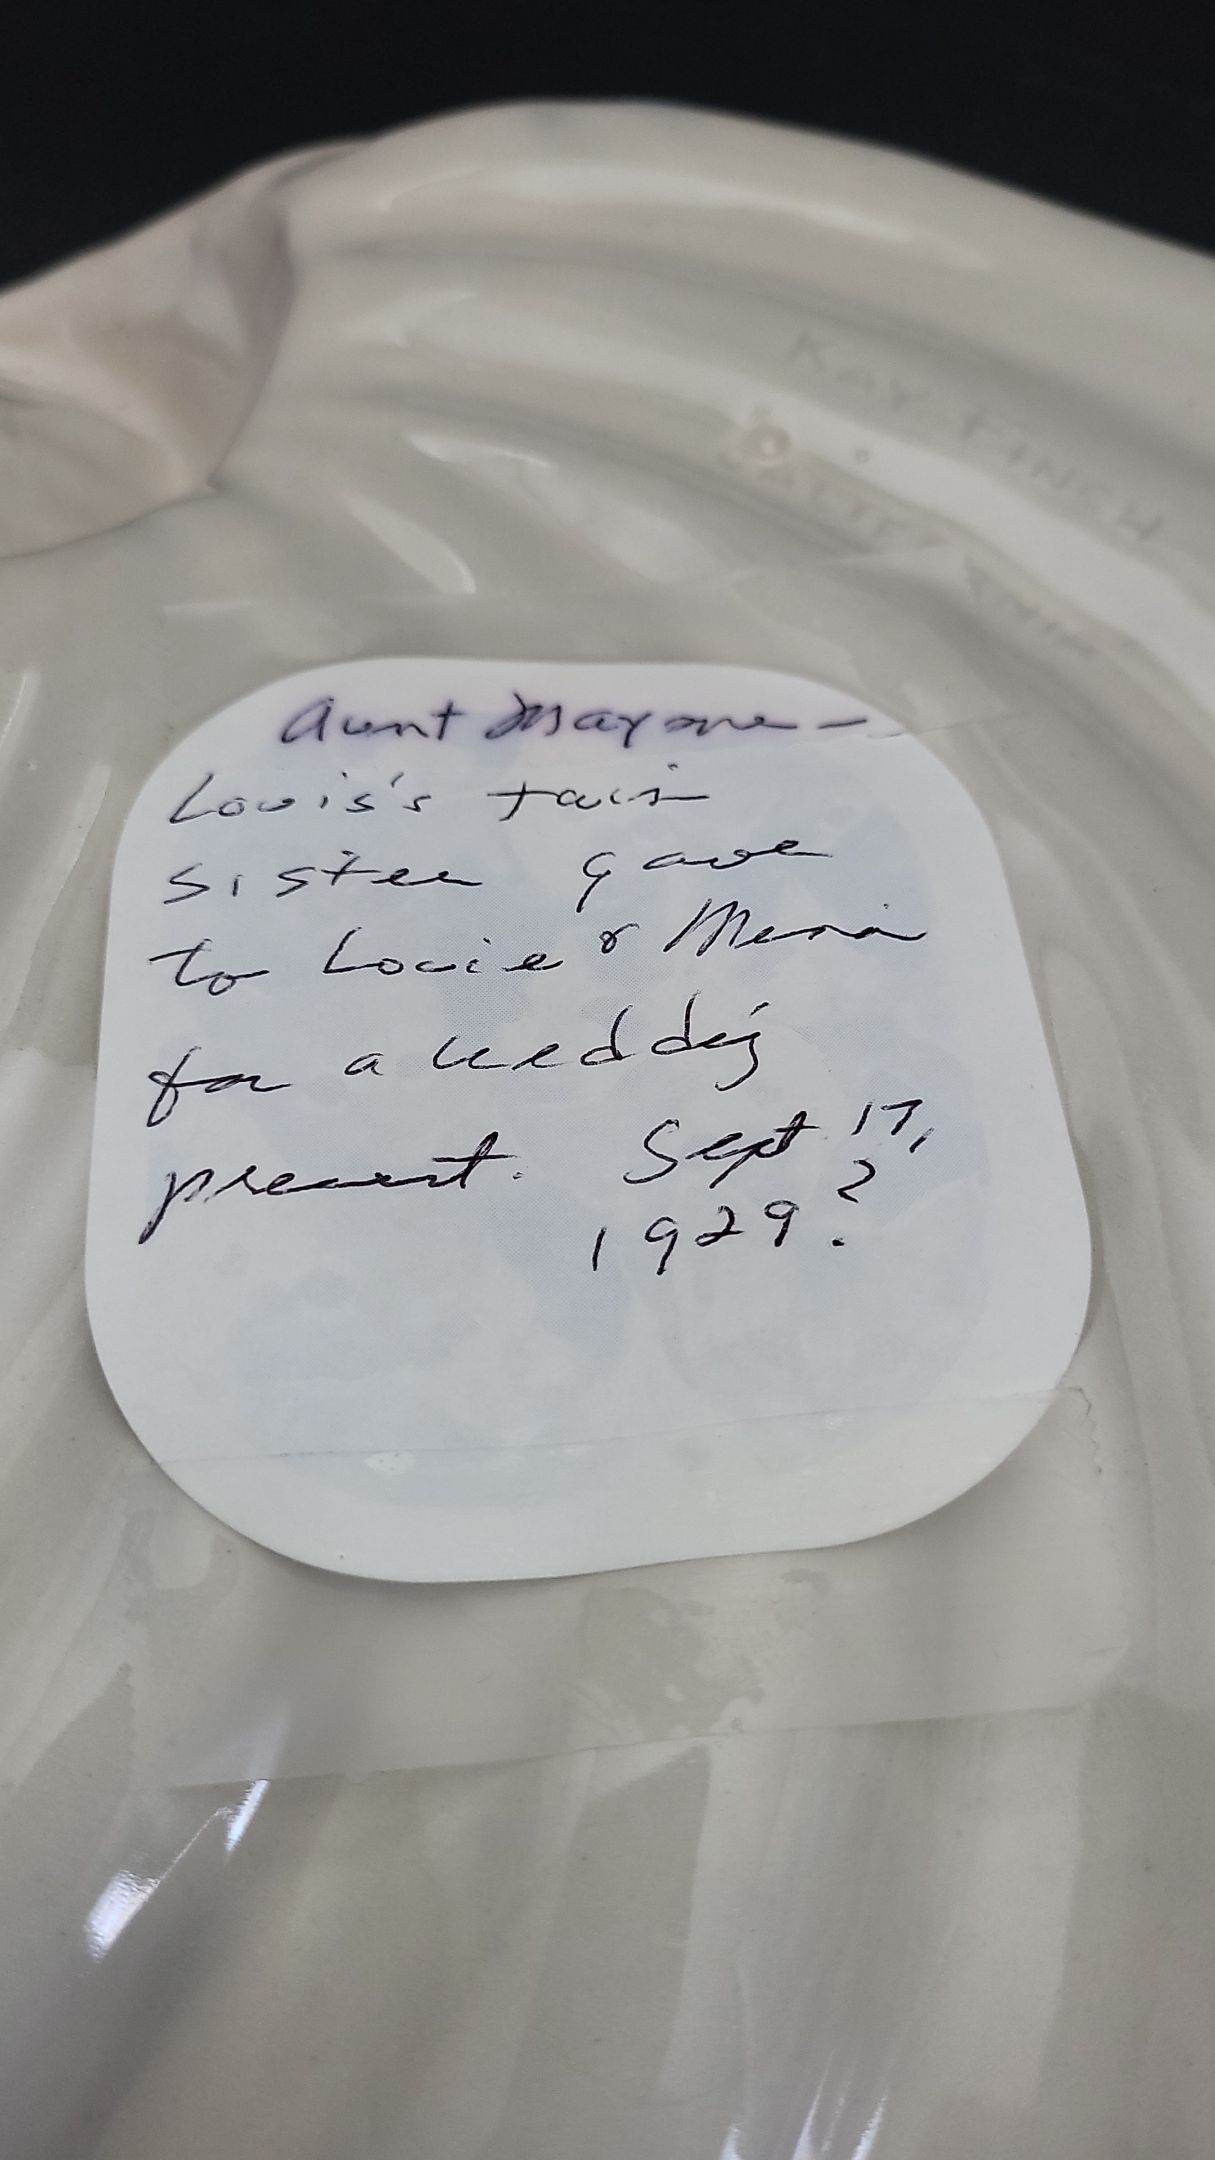 KAY FINCH
CALIFORNIA
Aunt Mayme –
Louis's twin
sister gave
to Louie & Mena
for a wedding
present. Sept 17,
1929?